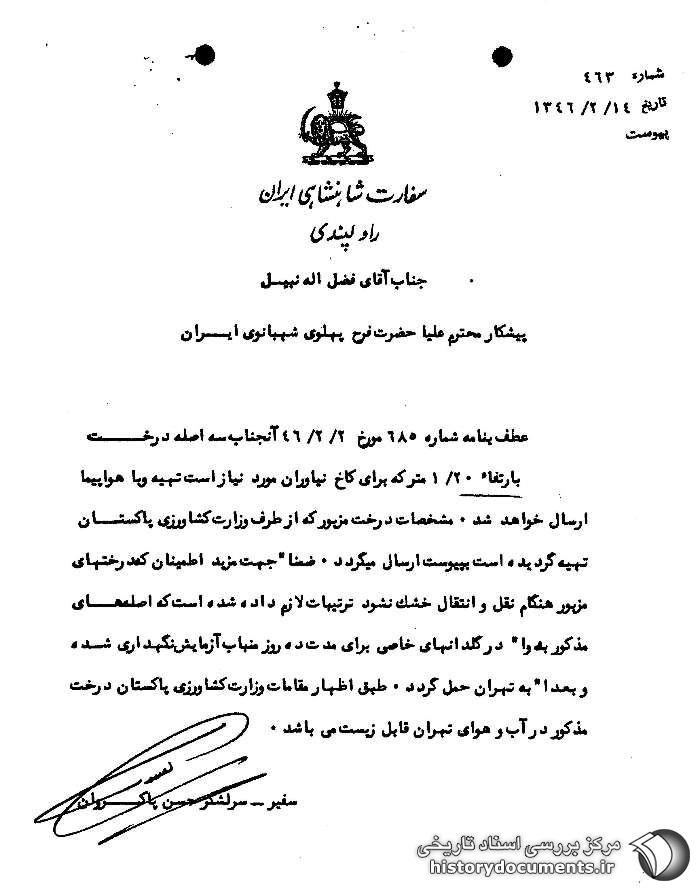 شماره ٤٦٣
تاریخ ١٣٤٦/٢/١٤
پیوست
سفارت شاهنشاهی ایران
راولپندی
جناب آقای فضل اله نبیل
پیشکار محترم علیا حضرت فرح پهلوی شهبانوی ایــــران
عطف بنامه شماره ٦٨٥ مورخ ٤٦/٢/٢ آنجناب سه اصله درخـــــت
بارتفاع ١/٢٠ متر که برای کاخ نیاوران مورد نیاز است تهیه و با هواپیما
ارسال خواهد شد ٠ مشخصات درخت مزبور که از طرف وزارت کشاورزی پاکستـــان
تهیه گردیده است بپیوست ارسال میگردد ٠ ضمنا" جهت مزید اطمینان که درختهای
مزبور هنگام نقل و انتقال خشك نشود ترتیبات لازم داده شده است که اصله‌هـــای
مذکور بدوا" در گلدانهای خاصی برای مدت ده روز منباب آزمایش نگهداری شـــده
و بعدا" به تهران حمل گردد ٠ طبق اظهار مقامات وزارت کشاورزی پاکستان درخت
مذکور در آب و هوای تهران قابل زیست می باشد ٠
سفیر ــ سرلشگر حسن پاکـــروان
مرکز بررسی اسناد تاریخی
historydocuments.ir